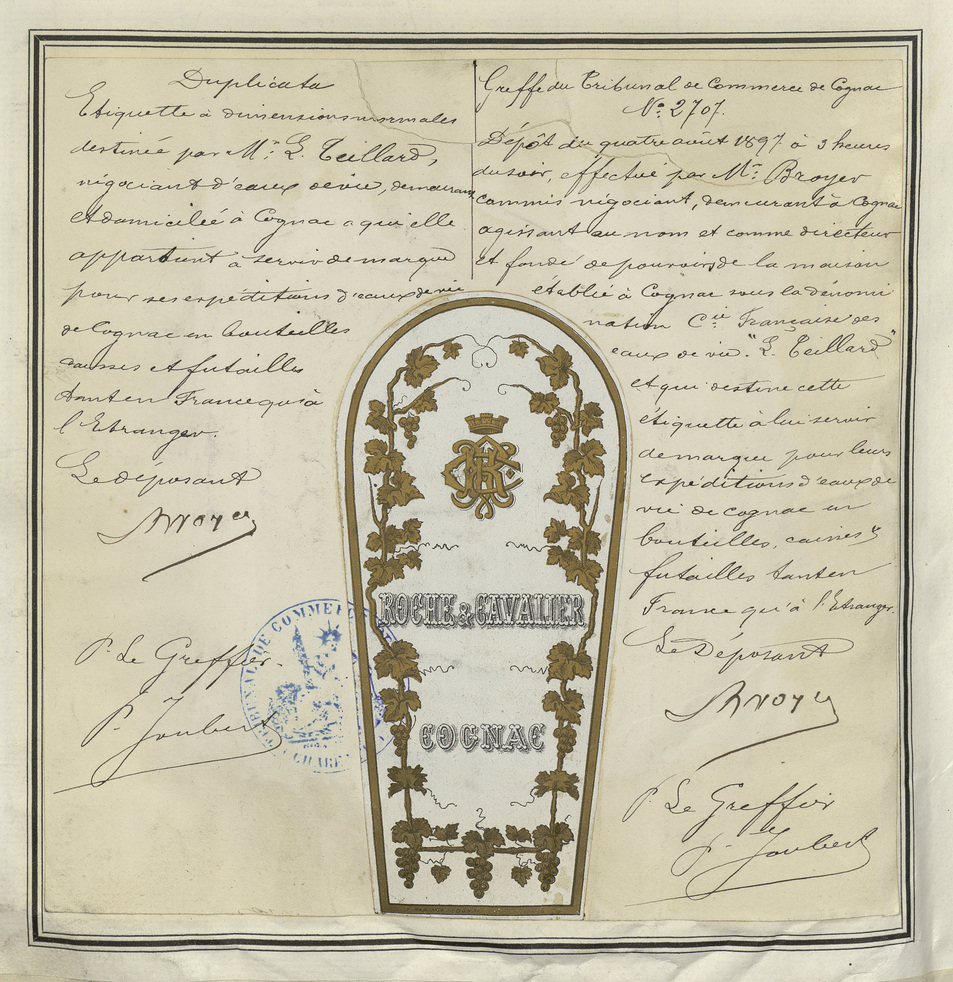 Duplicata
Etiquette à dimensions normales
destinée par Mr. L. Teillard,
négociant d'eaux de vie, demeurant
et domicilié à Cognac a qui elle
appartient à servir de marque
pour ses expéditions d'eaux de vie
de Cognac en bouteilles
caisses et futailles
tant en France qu'à
l'Etranger.
Le déposant
Broyer
P. Le Greffier.
P. Joubert
Greffe du Tribunal de Commerce de Cognac
No. 2707.
Dépôt du quatre août 1897 à 3 heures
du soir, effectué par Mr. Broyer
commis négociant, demeurant à Cognac
agissant au nom et comme directeur
et fondé de pouvoirs de la maison
établie à Cognac sous la dénomi
nation Cie Française des
eaux de vie "L. Teillard"
et qui destine cette
étiquette à lui servir
de marque pour leurs
expéditions d'eaux de
vie de cognac en
bouteilles, caisses
futailles tant en
France qu'à l'Etranger.
Le Déposant
Broyer
P. Le Greffier
P. Joubert
ROCHE & CAVALIER
COGNAC
TRIBUNAL DE COMMERCE